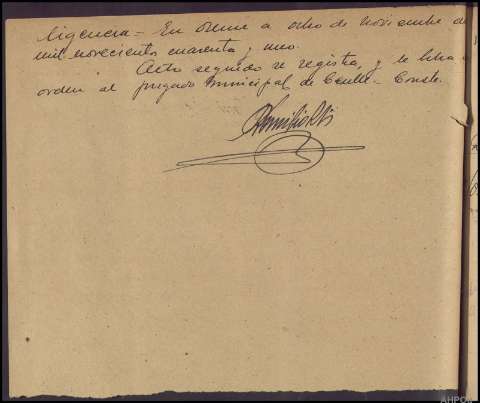 Diligencia - En Orense a ocho de noviembre de
mil novecientos cuarenta y uno.
Acto seguido se registra, y se libra
orden al Juzgado municipal de Cenlle - Consta.
AHPOU